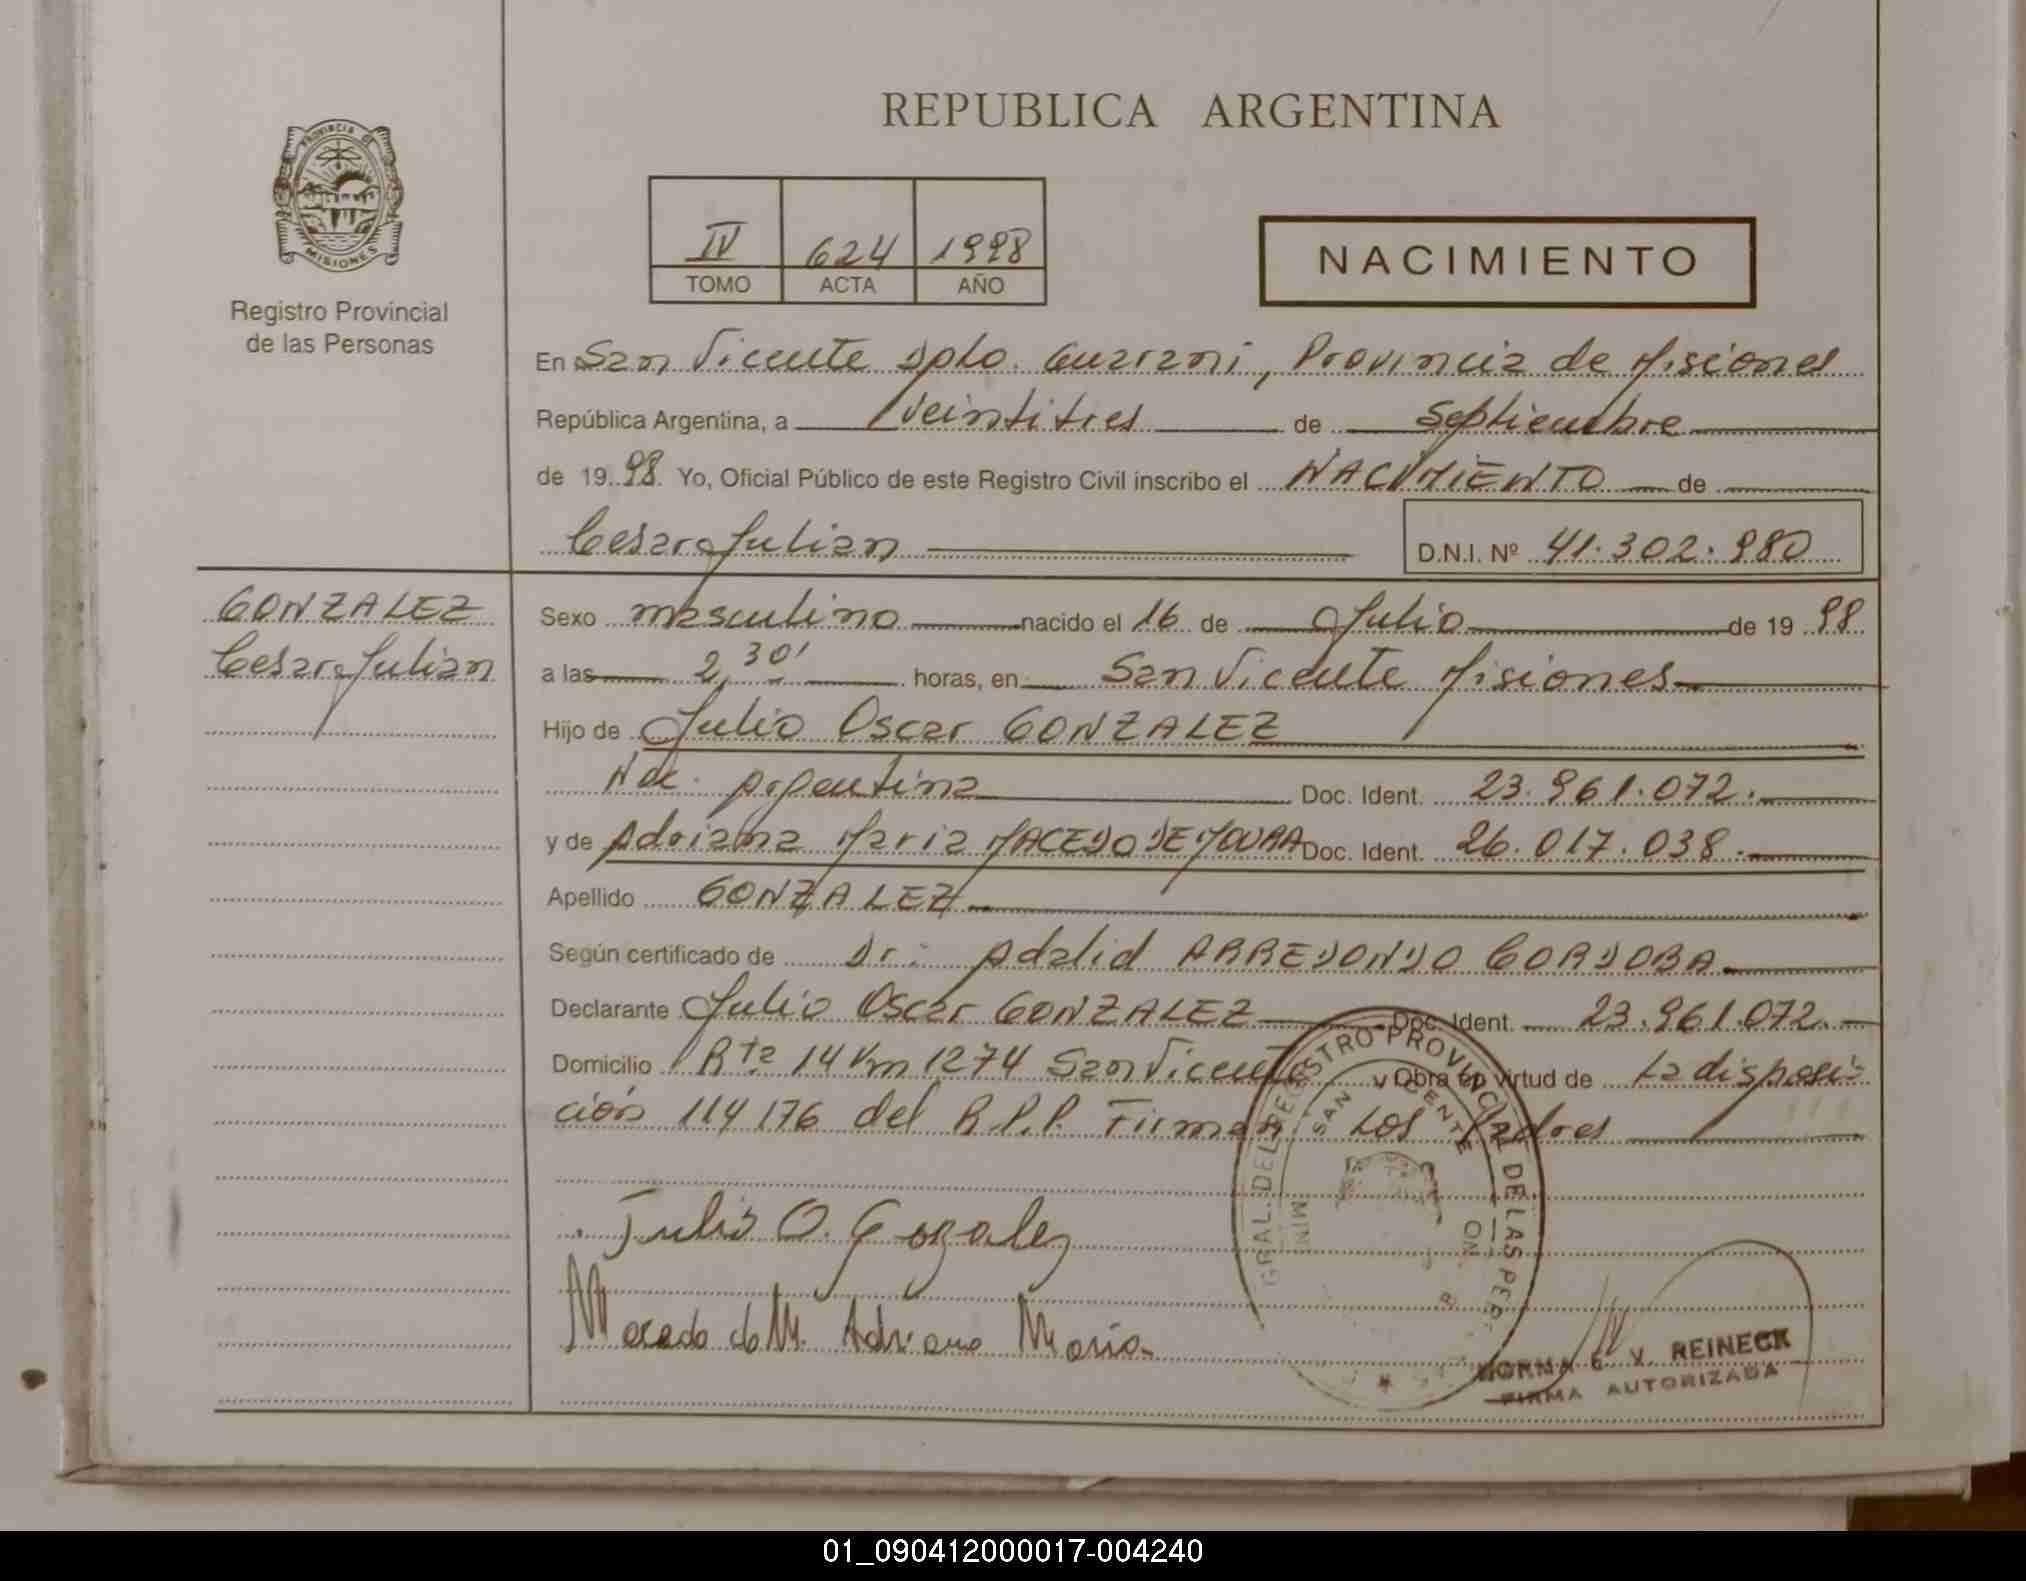 REPUBLICA ARGENTINA
PROVINCIA DE
MISIONES
Registro Provincial
de las Personas
IV 624 1998
TOMO ACTA AÑO
NACIMIENTO
En San Vicente Dpto. Guarani, Provincia de Misiones
República Argentina, a Veintitres de Septiembre
de 1998 Yo, Oficial Público de este Registro Civil inscribo el NACIMIENTO de
Cesar Julian D.N.I. Nº 41.302.980
GONZALEZ
Cesar Julian
Sexo masculino nacido el 16 de Julio de 1998
a las 2,30' horas, en San Vicente Misiones
Hijo de Julio Oscar GONZALEZ
Nac. Argentina Doc. Ident. 23.961.072.
y de Adriana Maria MACEDO DE MOURA Doc. Ident. 26.017.038.
Apellido GONZALEZ
Según certificado de Dr: Adalid ARREDONDO CORDOBA
Declarante Julio Oscar GONZALEZ Doc. Ident. 23.961.072.
Domicilio Rta 14 Km 1274 San Vicente Obra en virtud de La disposi
ción 114/76 del R.P.P. Firman Los Padres
GRAL. DEL REGISTRO PROVINCIAL DE LAS PER
SAN VICENTE
Julio O. Gozalez
Macedo de M. Adriana Maria
NORMA E. V. REINECK
FIRMA AUTORIZADA
01_090412000017-004240